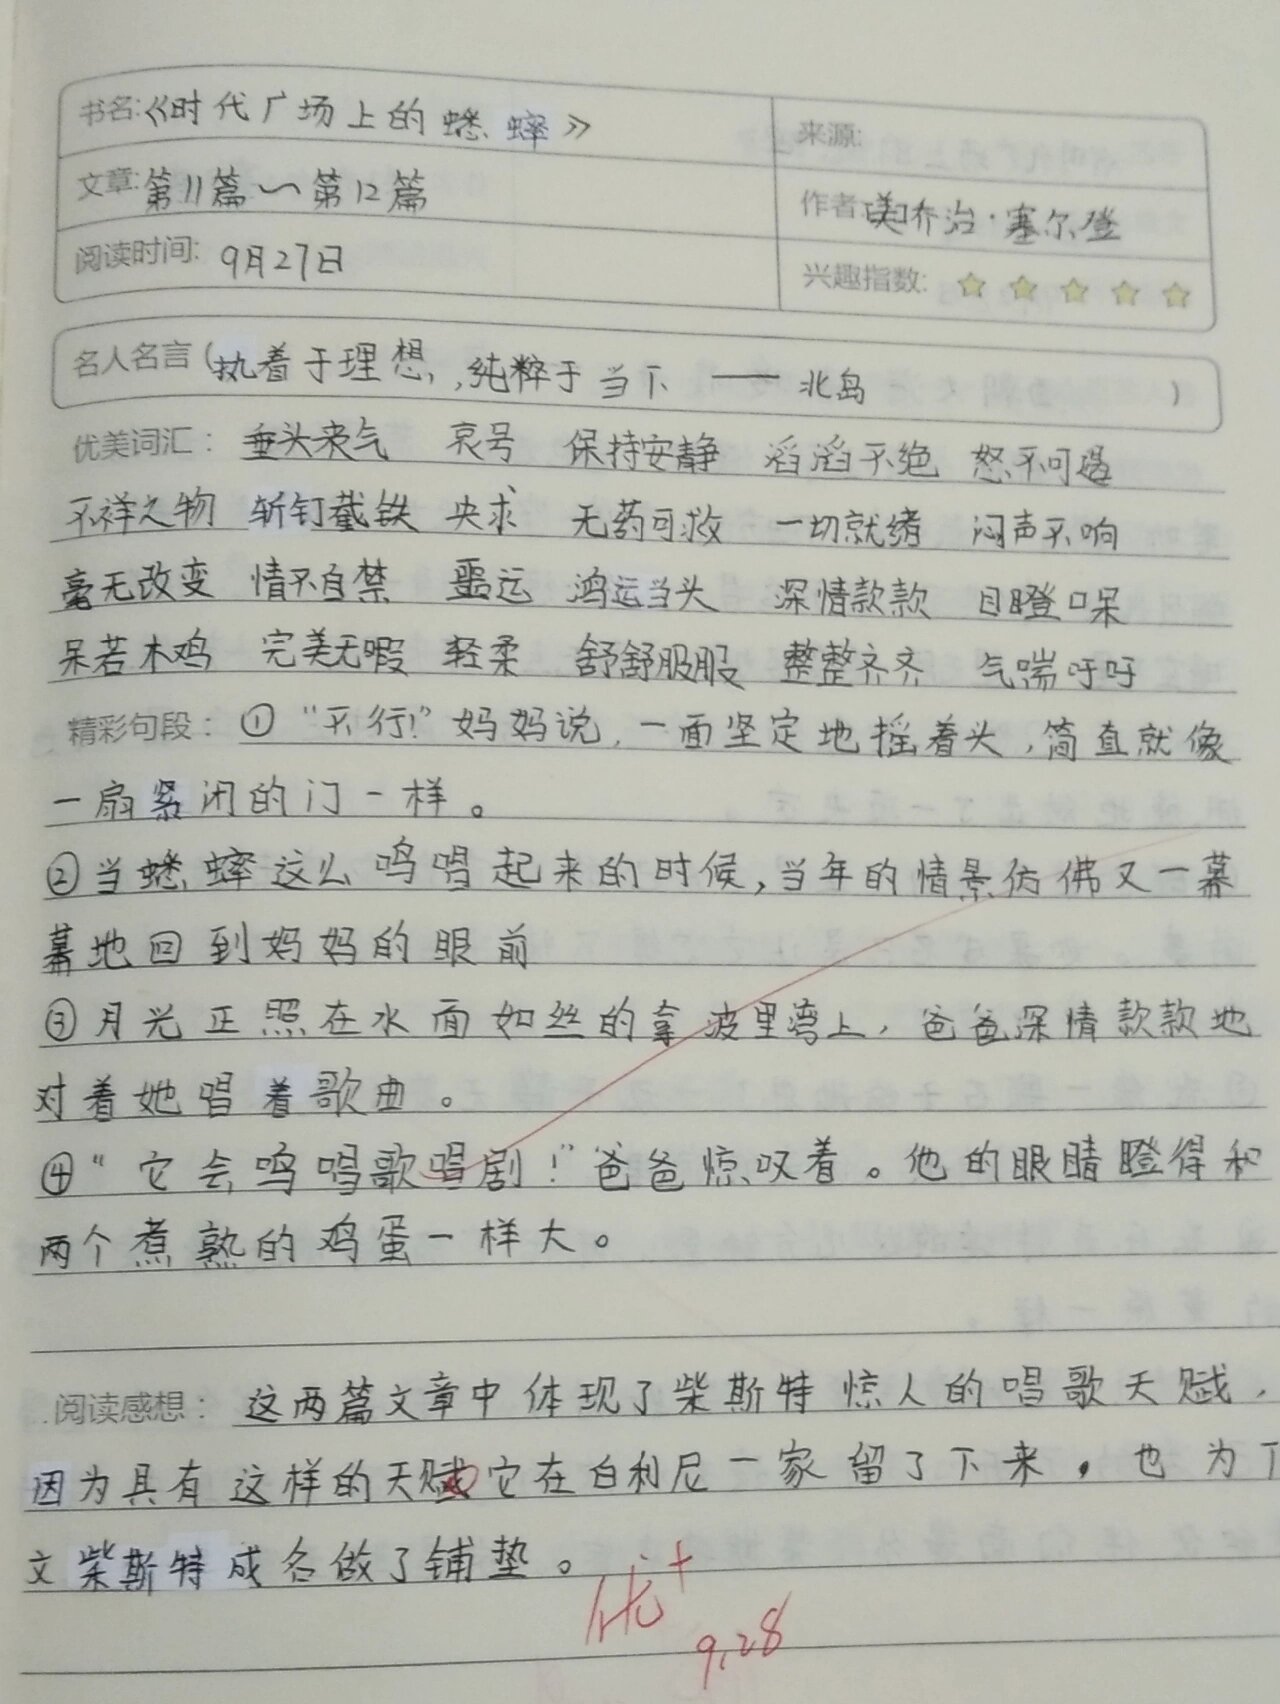 书名:《时代广场上的蟋蟀》
来源:
文章:第11篇~第12篇
作者:[美]乔治·塞尔登
阅读时间: 9月27日
兴趣指数:
名人名言(执着于理想,纯粹于当下 —— 北岛)
优美词汇: 垂头丧气 哀号 保持安静 滔滔不绝 怒不可遏
不祥之物 斩钉截铁 央求 无药可救 一切就绪 闷声不响
毫无改变 情不自禁 噩运 鸿运当头 深情款款 目瞪口呆
呆若木鸡 完美无暇 轻柔 舒舒服服 整整齐齐 气喘吁吁
精彩句段: ①“不行!”妈妈说,一面坚定地摇着头,简直就像
一扇紧闭的门一样。
②当蟋蟀这么鸣唱起来的时候,当年的情景仿佛又一幕
幕地回到妈妈的眼前
③月光正照在水面如丝的拿波里湾上,爸爸深情款款地
对着她唱着歌曲。
④“它会鸣唱歌唱剧!”爸爸惊叹着。他的眼睛瞪得和
两个煮熟的鸡蛋一样大。
阅读感想: 这两篇文章中体现了柴斯特惊人的唱歌天赋,
因为具有这样的天赋它在白利尼一家留了下来,也为下
文柴斯特成名做了铺垫。
优+
9.28